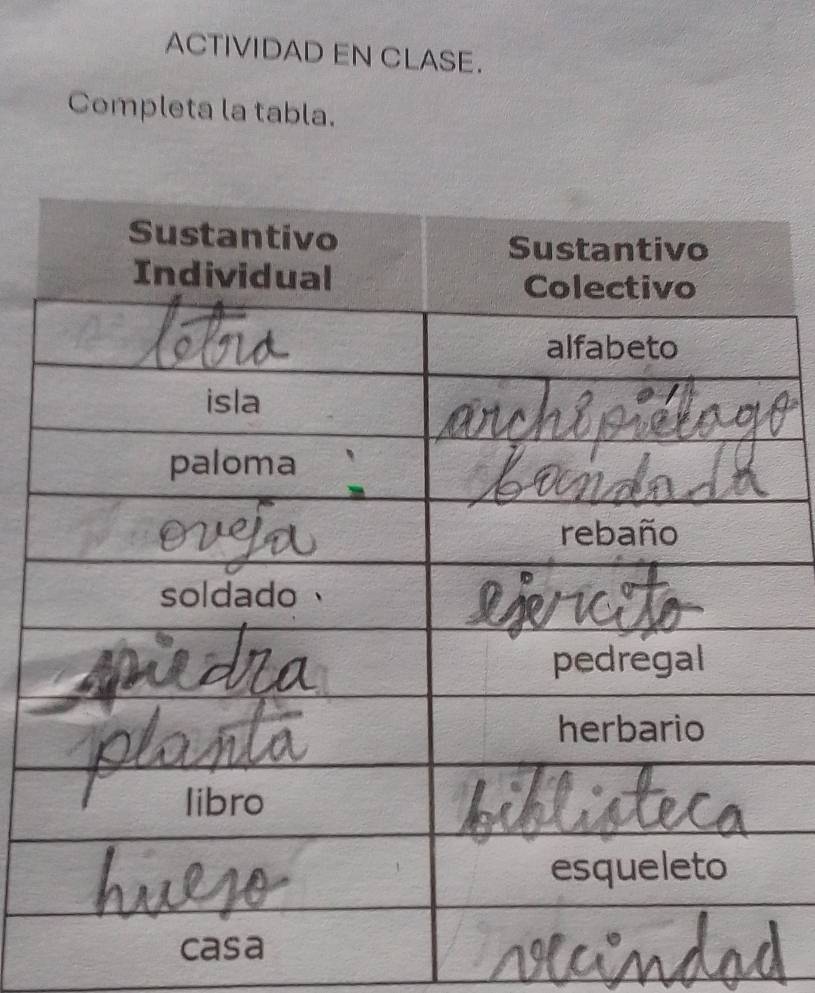 ACTIVIDAD EN CLASE.
Completa la tabla.
Sustantivo Individual
Sustantivo Colectivo
letra alfabeto
isla archipiélago
paloma bandada
oveja rebaño
soldado ejercito
piedra pedregal
planta herbario
libro biblioteca
hueso esqueleto
casa vecindad